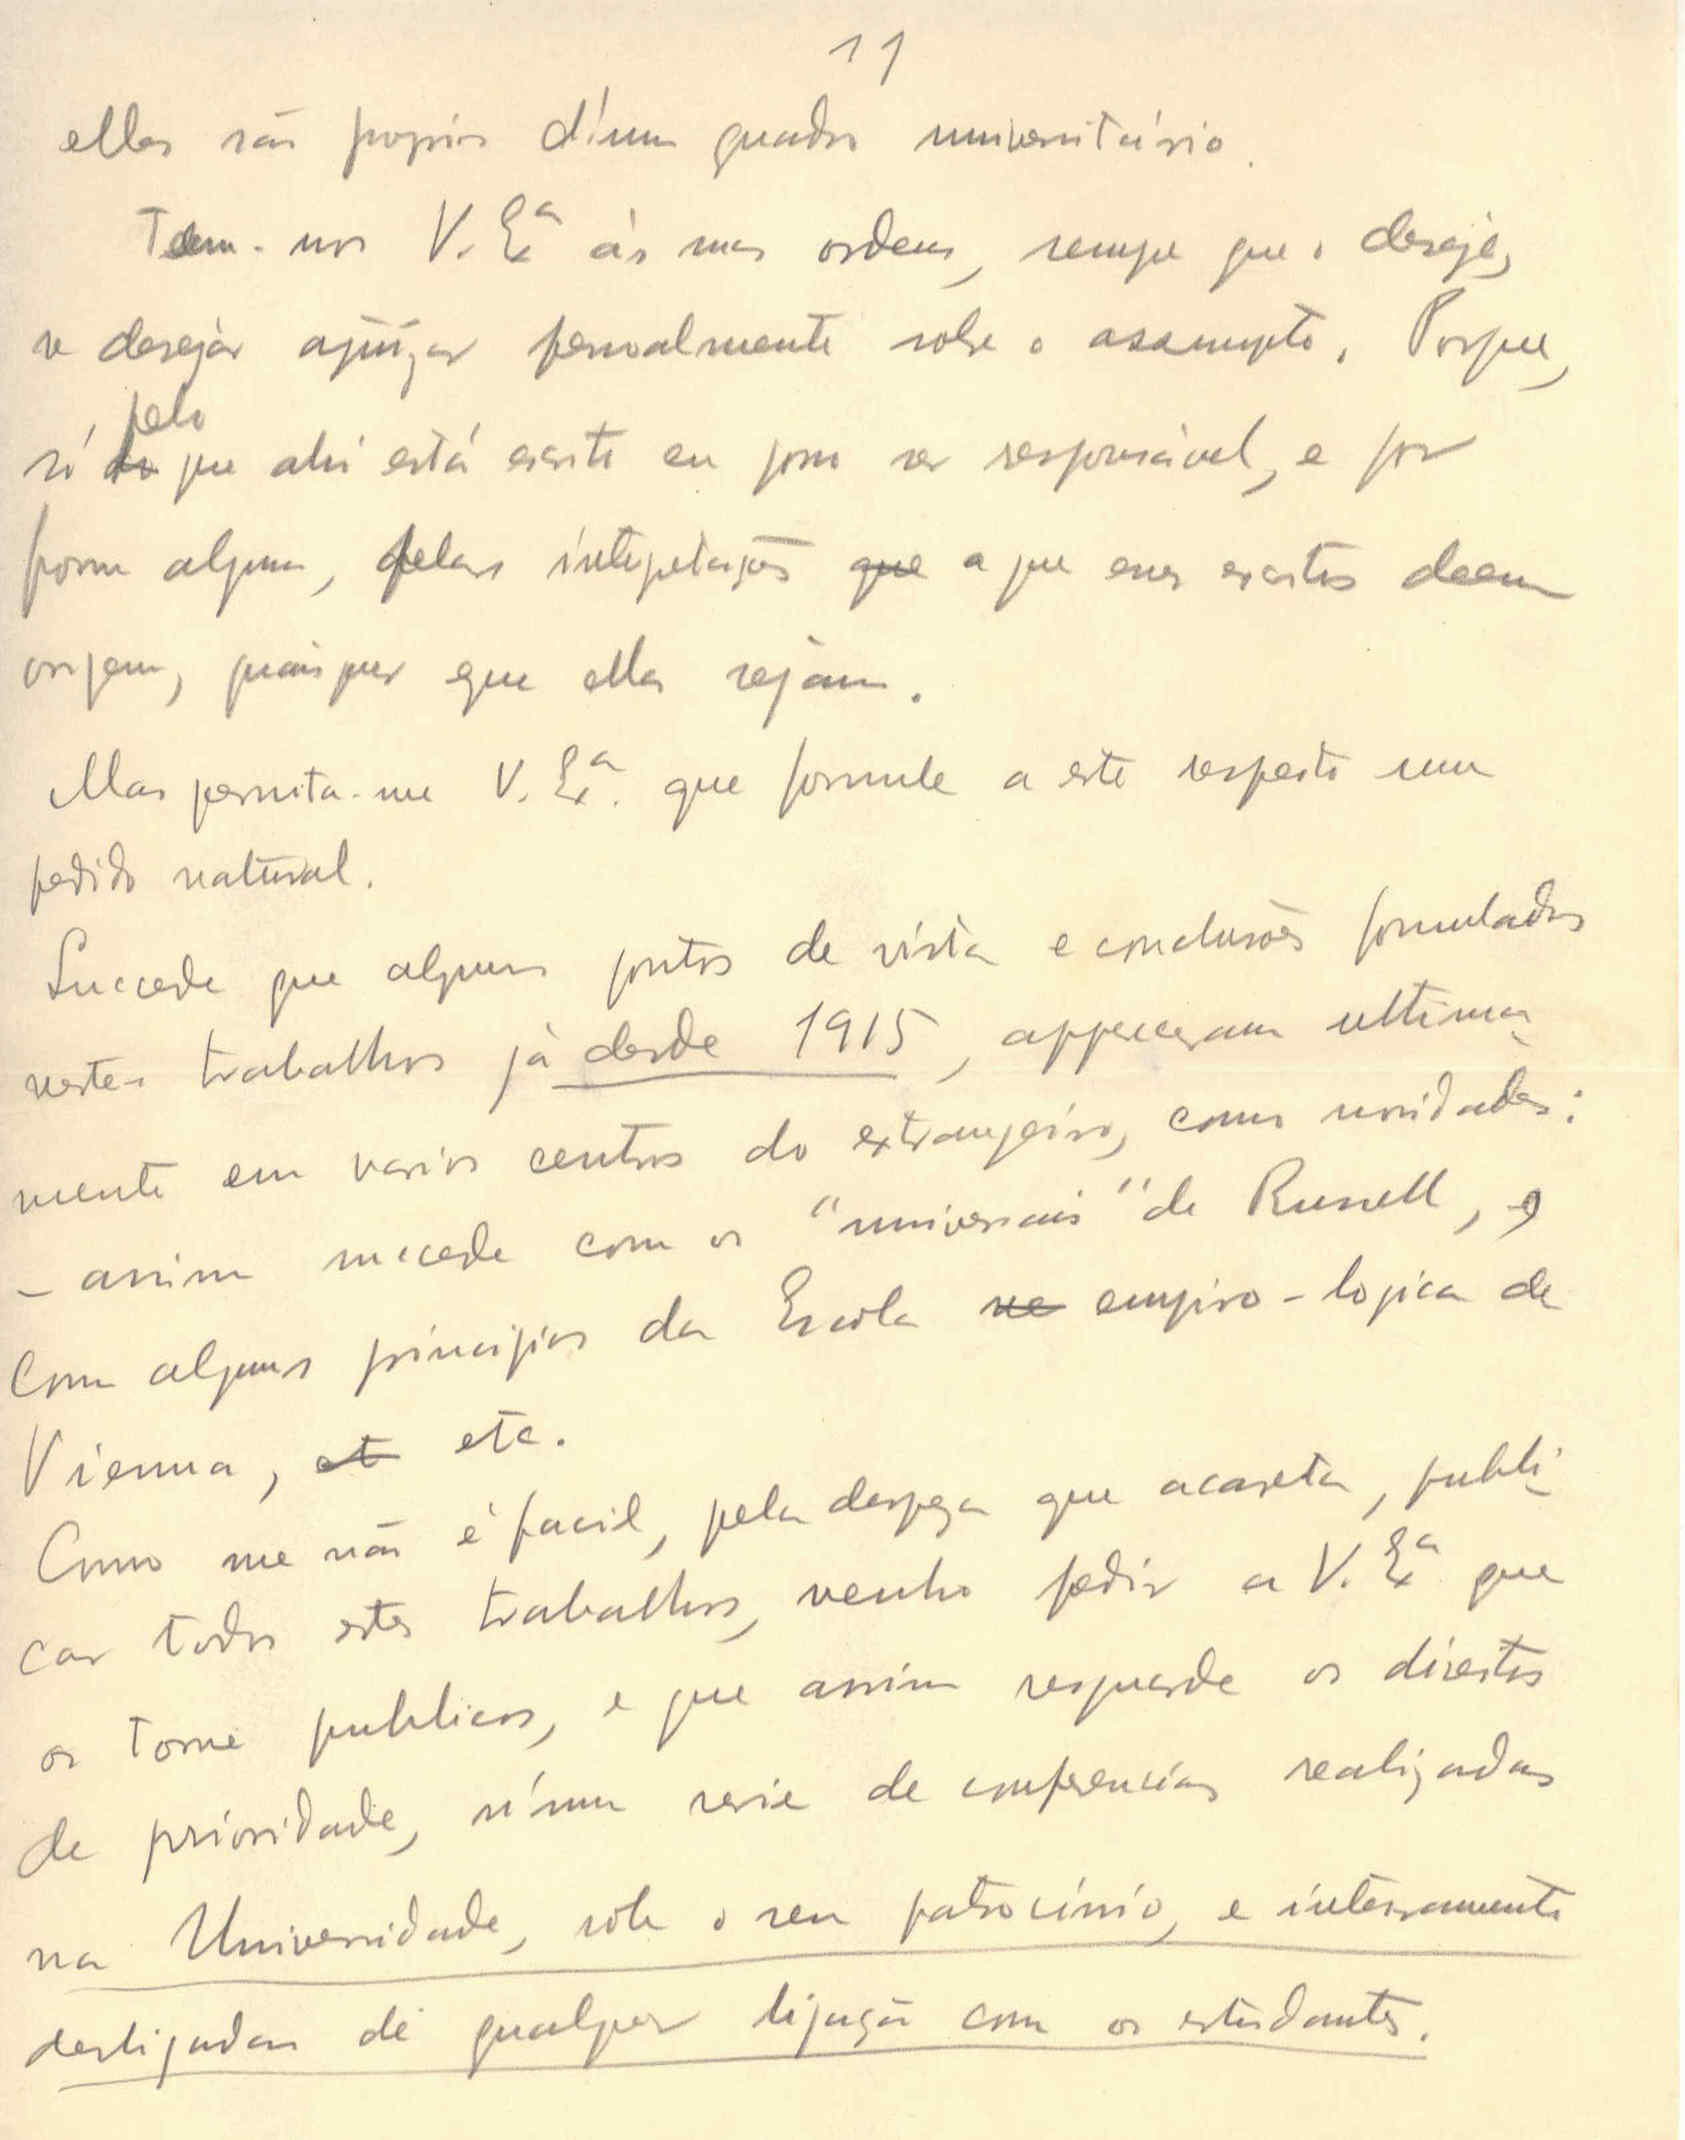 11
elles são proprios d'um quadro universitário.
Tem-nos V. Exª ás suas ordens, sempre que o deseje,
se desejar ajuizar pessoalmente sobre o assumpto. Porque,
só do pelo que ahi está escrito eu posso ser responsável, e por
forma alguma, pelas interpretações que a que esses escritos deem
origem, quaisquer que ellas sejam.
Mas permita-me V. Exª. que formule a este respeito um
pedido natural.
Succede que alguns pontos de vista e conclusões formulados
nestes trabalhos já desde 1915, appareceram ultima-
mente em varios centros do extrangeiro, como novidades:
– assim succede com os "universais" de Russell, e
com alguns principios da Escola ne empiro-logica de
Vienna, et etc.
Como me não é facil, pela despeza que acarreta, publi-
car todos estes trabalhos, venho pedir a V. Exª que
os torne publicos, e que assim resguarde os direitos
de prioridade, n'uma serie de conferencias realizadas
na Universidade, sob o seu patrocinio, e inteiramente
desligadas de qualquer ligação com os estudantes.